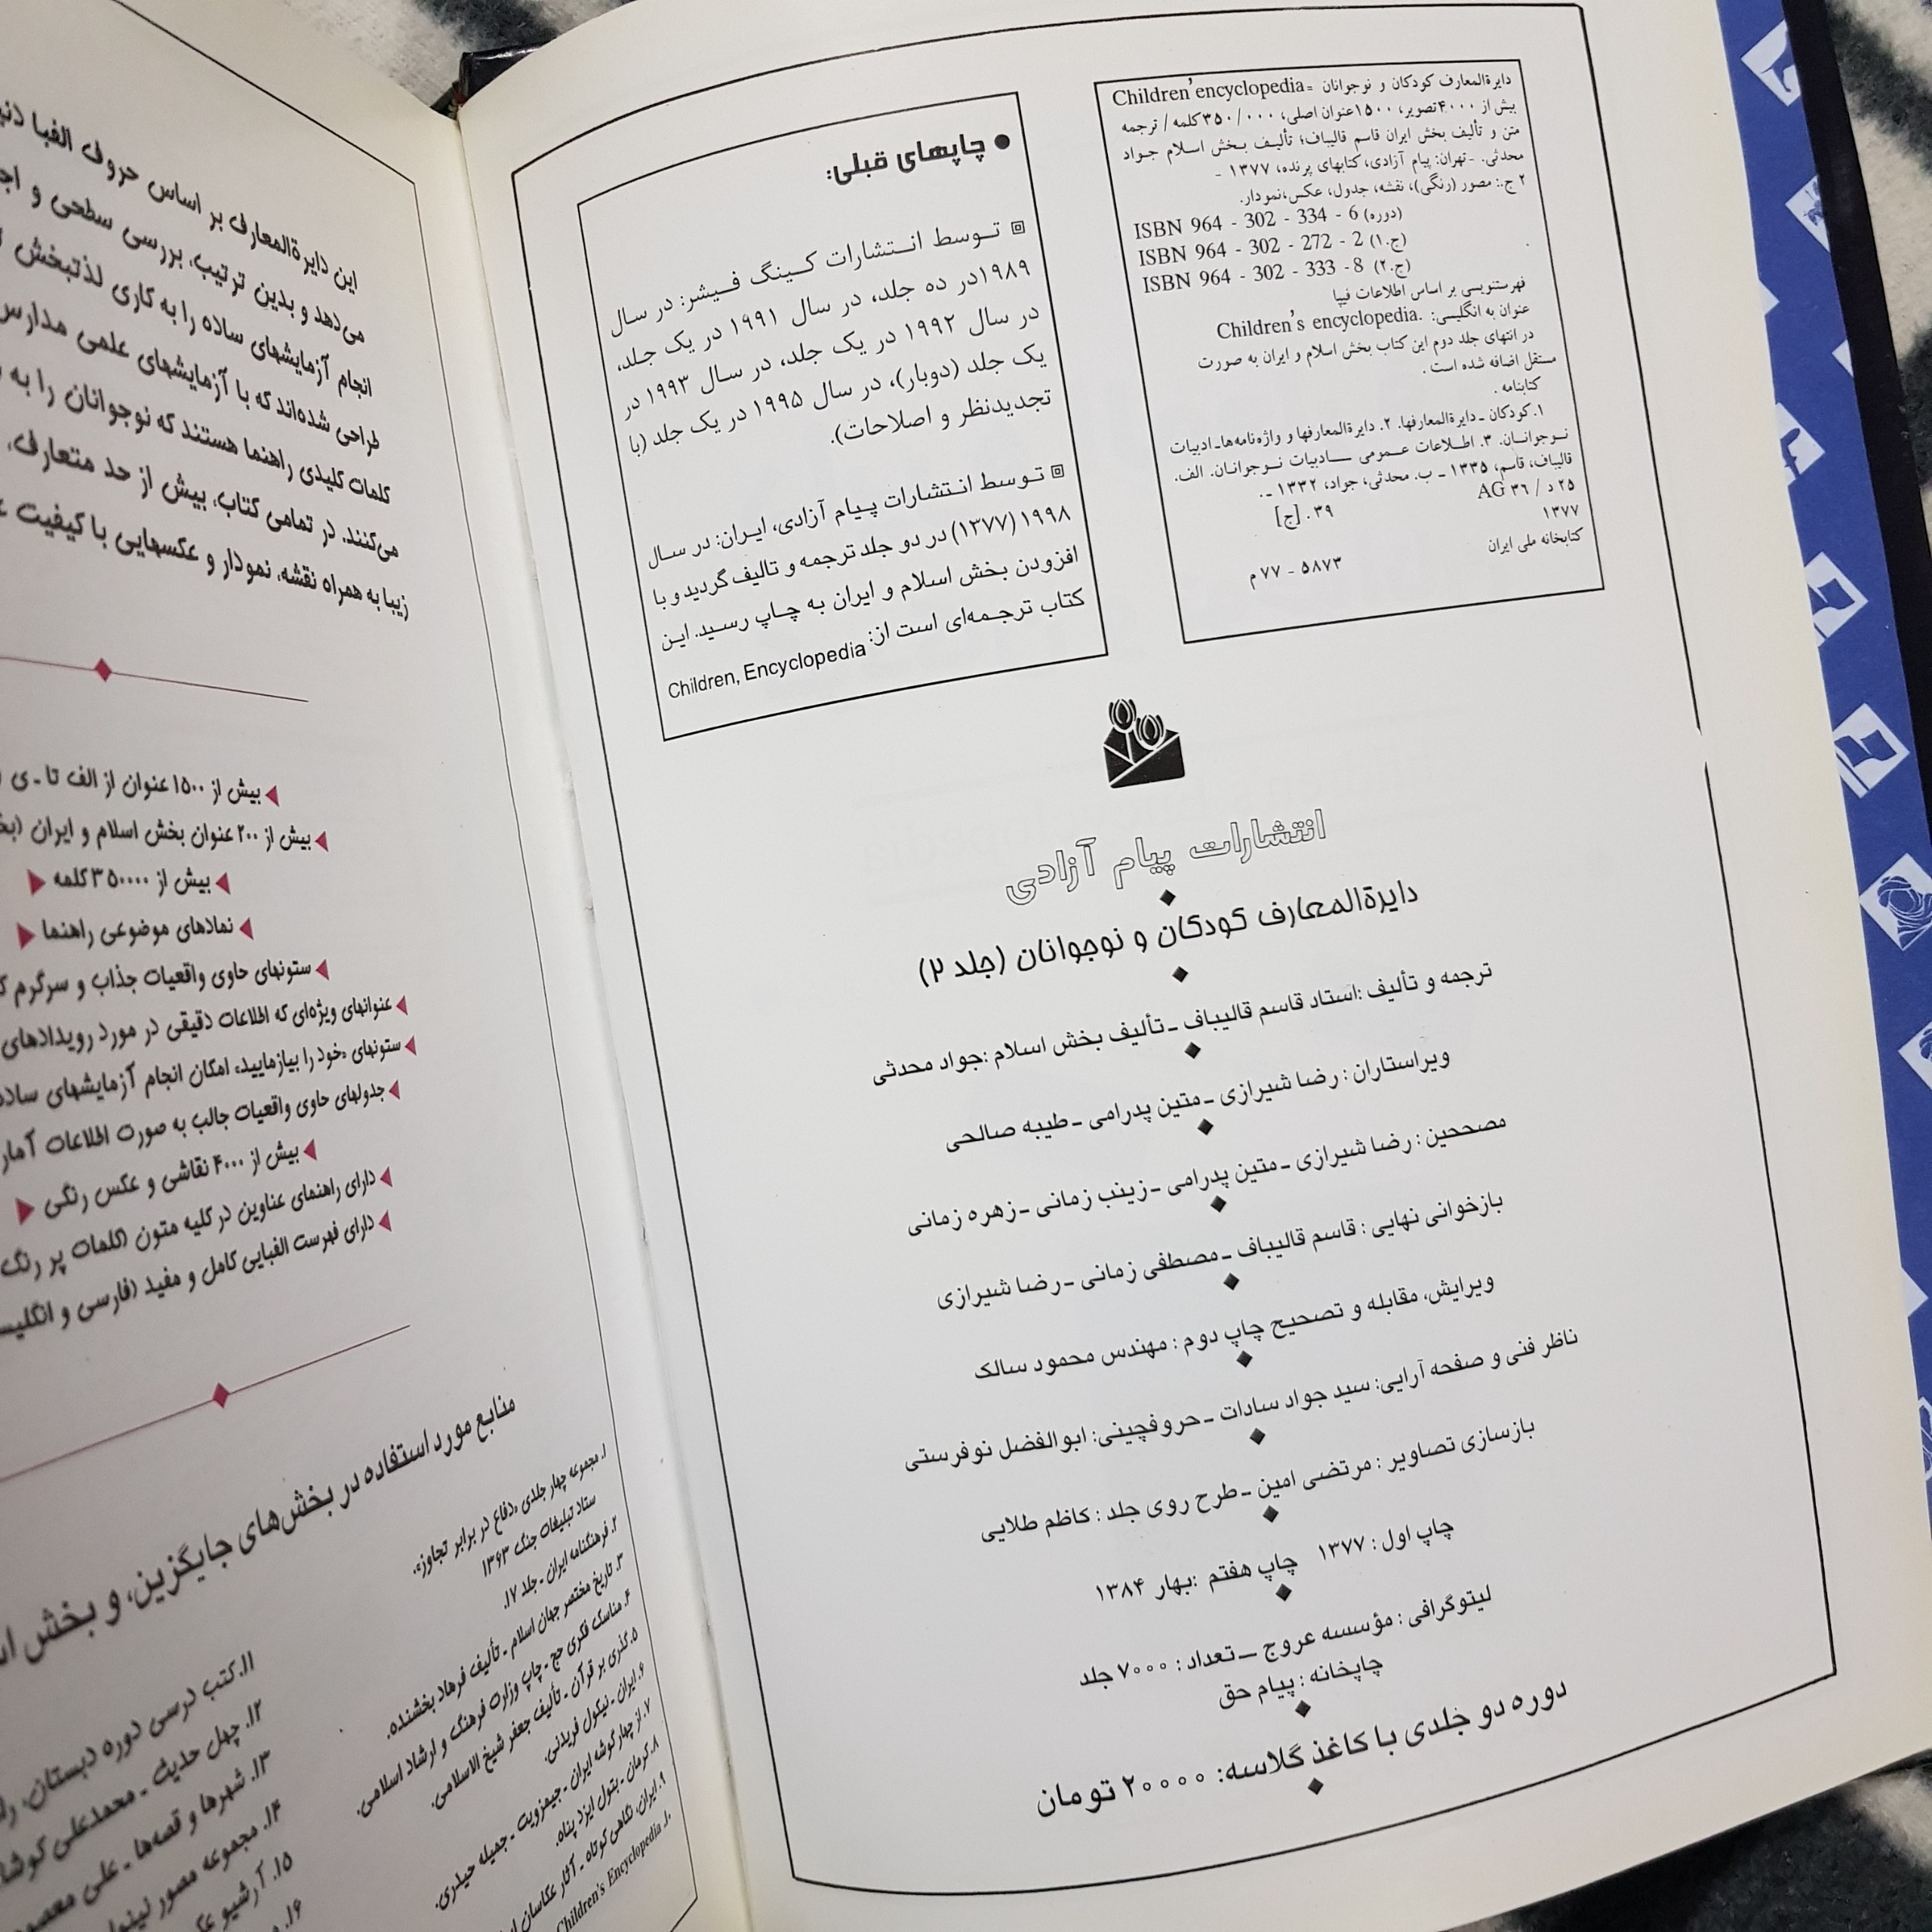 دایرةالمعارف کودکان و نوجوانان = Children'encyclopedia
بیش از ۴۰۰۰تصویر، ۱۵۰۰عنوان اصلی، ۳۵۰/۰۰۰کلمه / ترجمه
متن و تألیف بخش ایران قاسم قالیباف؛ تألیف بخش اسلام جواد
محدثی. - تهران: پیام آزادی، کتابهای پرنده، ۱۳۷۷ -
۲ ج.: مصور (رنگی)، نقشه، جدول، عکس،نمودار.
ISBN 964 - 302 - 334 - 6 (دوره)
ISBN 964 - 302 - 272 - 2 (ج.۱)
ISBN 964 - 302 - 333 - 8 (ج.۲)
فهرستنویسی بر اساس اطلاعات فیپا
عنوان به انگلیسی: Children's encyclopedia.
در انتهای جلد دوم این کتاب بخش اسلام و ایران به صورت
مستقل اضافه شده است .
کتابنامه .
۱. کودکان ـ دایرةالمعارفها. ۲. دایرةالمعارفها و واژه‌نامه‌ها ـ ادبیات
نوجوانان. ۳. اطلاعات عمومی ـــ ادبیات نوجوانان. الف.
قالیباف، قاسم، ۱۳۳۵ ـ ب. محدثی، جواد، ۱۳۳۲ ـ .
۲۵ د / ۳۶ AG
۰۳۹ [ج]
۱۳۷۷
کتابخانه ملی ایران
۵۸۷۳ - ۷۷ م
● چاپهای قبلی:
توسط انتشارات کینگ فیشر: در سال
۱۹۸۹در ده جلد، در سال ۱۹۹۱ در یک جلد،
در سال ۱۹۹۲ در یک جلد، در سال ۱۹۹۳ در
یک جلد (دوبار)، در سال ۱۹۹۵ در یک جلد (با
تجدیدنظر و اصلاحات).
توسط انتشارات پیام آزادی، ایران: در سال
۱۹۹۸ (۱۳۷۷) در دو جلد ترجمه و تالیف گردید و با
افزودن بخش اسلام و ایران به چاپ رسید. این
کتاب ترجمه‌ای است از:
Children, Encyclopedia
انتشارات پیام آزادی
دایرةالمعارف کودکان و نوجوانان (جلد ۲)
ترجمه و تألیف :استاد قاسم قالیباف ـ تألیف بخش اسلام :جواد محدثی
ویراستاران : رضا شیرازی ـ متین پدرامی ـ طیبه صالحی
مصححین : رضا شیرازی ـ متین پدرامی ـ زینب زمانی ـ زهره زمانی
بازخوانی نهایی : قاسم قالیباف ـ مصطفی زمانی ـ رضا شیرازی
ویرایش، مقابله و تصحیح چاپ دوم : مهندس محمود سالک
ناظر فنی و صفحه آرایی: سید جواد سادات ـ حروفچینی: ابوالفضل نوفرستی
بازسازی تصاویر : مرتضی امین ـ طرح روی جلد : کاظم طلایی
چاپ اول : ۱۳۷۷ چاپ هفتم :بهار ۱۳۸۴
لیتوگرافی : مؤسسه عروج ــ تعداد : ۷۰۰۰ جلد
چاپخانه : پیام حق
دوره دو جلدی با کاغذ گلاسه: ۲۰۰۰۰ تومان
این دایرةالمعارف بر اساس حروف الفبا
می‌دهد و بدین ترتیب، بررسی سطحی و
انجام آزمایشهای ساده را به کاری لذتبخش
طراحی شده‌اند که با آزمایشهای علمی مدارس
کلمات کلیدی راهنما هستند که نوجوانان را به
می‌کنند. در تمامی کتاب، بیش از حد متعارف،
زیبا به همراه نقشه، نمودار و عکسهایی با کیفیت
بیش از ۱۵۰۰ عنوان از الف تا ـ ی
بیش از ۲۰۰ عنوان بخش اسلام و ایران
بیش از ۳۵۰۰۰۰ کلمه
نمادهای موضوعی راهنما
ستونهای حاوی واقعیات جذاب و سرگرم
عنوانهای ویژه‌ای که اطلاعات دقیقی در مورد رویدادهای
ستونهای «خود را بیازمایید» امکان انجام آزمایشهای ساده
جدولهای حاوی واقعیات جالب به صورت اطلاعات
بیش از ۴۰۰۰ نقاشی و عکس رنگی
دارای راهنمای عناوین در کلیه متون (کلمات پر رنگ
دارای فهرست الفبایی کامل و مفید (فارسی و
منابع مورد استفاده در بخش‌های جایگزین، و بخش
۱. مجموعه چهار جلدی «دفاع در برابر تجاوز»،
ستاد تبلیغات جنگ ۱۳۶۳
۲. فرهنگنامه ایران ـ جلد ۱۷.
۳. تاریخ مختصر جهان اسلام ـ تألیف فرهاد بخشنده.
۴. مناسک فکری حج ـ چاپ وزارت فرهنگ و ارشاد اسلامی.
۵. گذری بر قرآن ـ تألیف جعفر شیخ الاسلامی.
۶. ایران ـ نیکول فریدنی.
۷. از چهار گوشه ایران ـ جیمزویت ـ جمیله حیدری.
۸. کرمان ـ بتول ایزد پناه.
۹. ایران، نگاهی کوتاه ـ آثار عکاسان
۱۰. Children's Encyclopedia
۱۱. کتب درسی دوره دبستان،
۱۲. چهل حدیث ـ محمدعلی
۱۳. شهرها و قصه‌ها ـ علی
۱۴. مجموعه مصور
۱۵. آرشیو
۱۶.